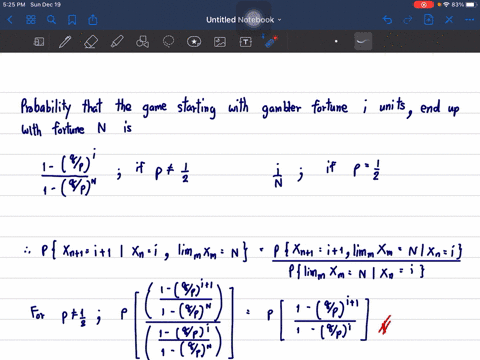 5:25 PM Sun Dec 19
83%
Untitled Notebook
Probability that the game starting with gambler fortune i units, end up
with fortune N is
1-(q/p)^i / 1-(q/p)^N ; if p ≠ 1/2    i/N ; if p = 1/2
∴ P{Xn+1 = i+1 | Xn = i, limm Xm = N} = P{Xn+1 = i+1, limm Xm = N | Xn = i} / P{limm Xm = N | Xn = i}
For p ≠ 1/2 ; P[(1-(q/p)^i+1 / 1-(q/p)^N) / (1-(q/p)^i / 1-(q/p)^N)] = P[1-(q/p)^i+1 / 1-(q/p)^i]